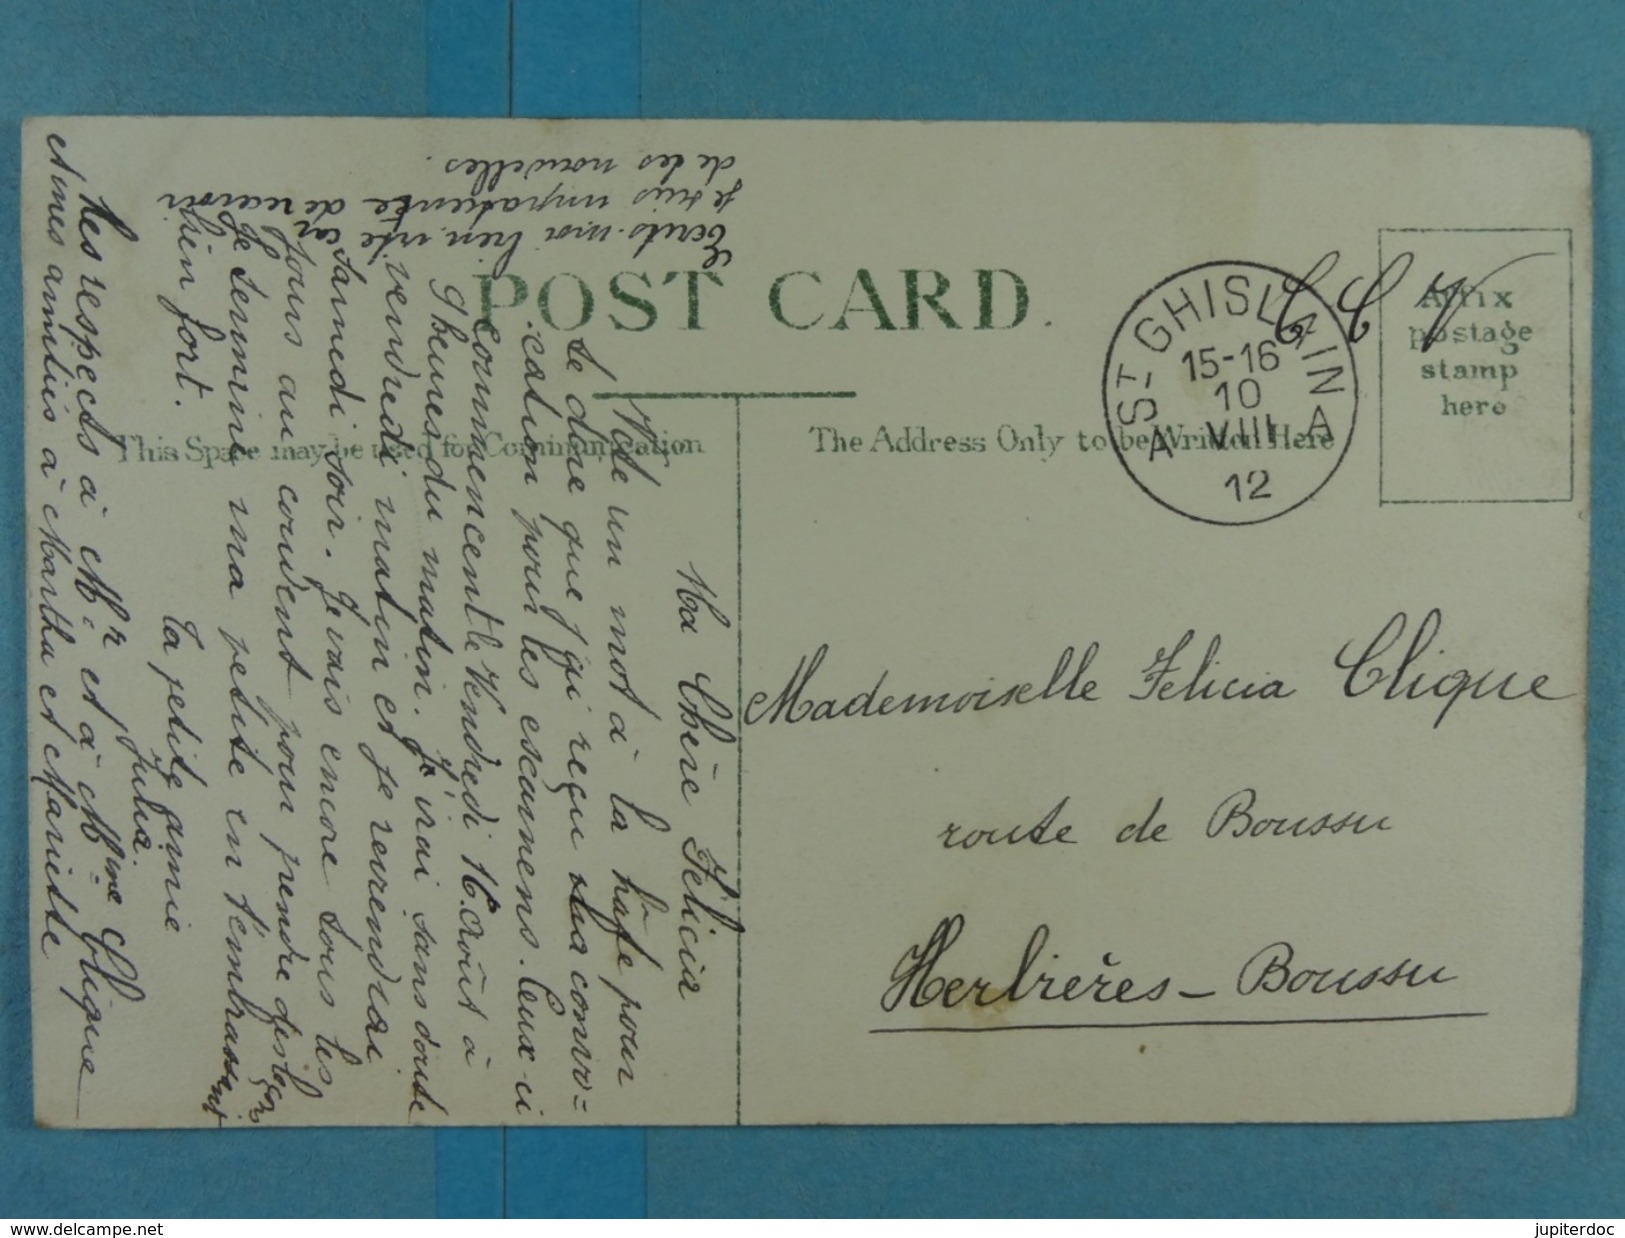 POST CARD
This Space may be used for Communication
The Address Only to be Written Here
Affix
postage
stamp
here
ST GHISLAIN
15-16
10
VIII
12
A A
Mademoiselle Felicia Clique
route de Boussu
Herbières - Boussu
Ma Chère Félicia
un mot à la hâte pour
te dire que j'ai reçu ma convo=
cation pour les examens. Ceux-ci
commencent le Vendredi 16 août à
9 heures du matin. J'y irai sans doute
vendredi matin et je reviendrai
samedi soir. Je vais encore tous les
jours au couvent pour prendre des leçons
Je termine ma petite en t'embrassant
bien fort.
Ta petite amie
Julia.
Mes respects à Mr et à Mme Clique
Aimes amitiés à Martha et Mariette
Ecrits-moi bien vite car
je suis impatiente de recevoir
de tes nouvelles.
www.delcampe.net
jupiterdoc